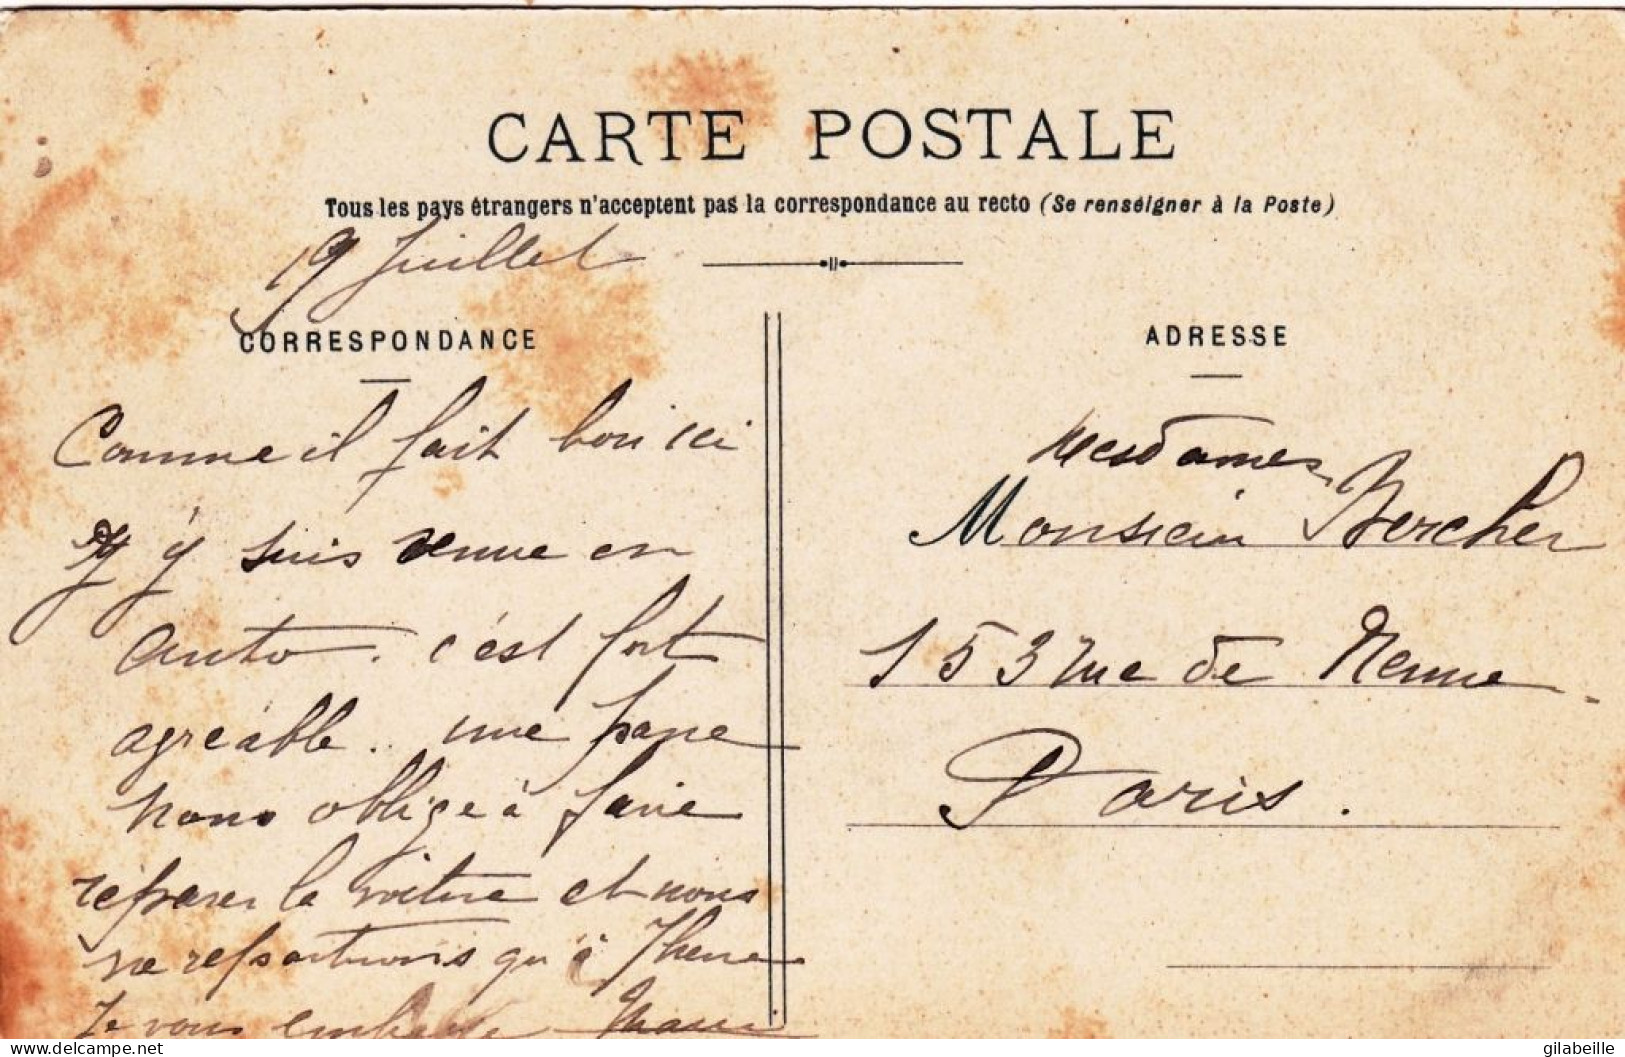 CARTE POSTALE
Tous les pays étrangers n'acceptent pas la correspondance au recto (Se renseigner à la Poste)
19 Juillet
CORRESPONDANCE
Comme il fait bon ici
j'y suis venue en
auto. c'est fort
agréable.. une pane
nous oblige à faire
réparer la voiture et nous
ne repartirons qu'à
Je vous embrasse
ADRESSE
Mesdames
Monsieur Bercher
153 rue de Rennes
Paris.
delcampe.net
gilabeille